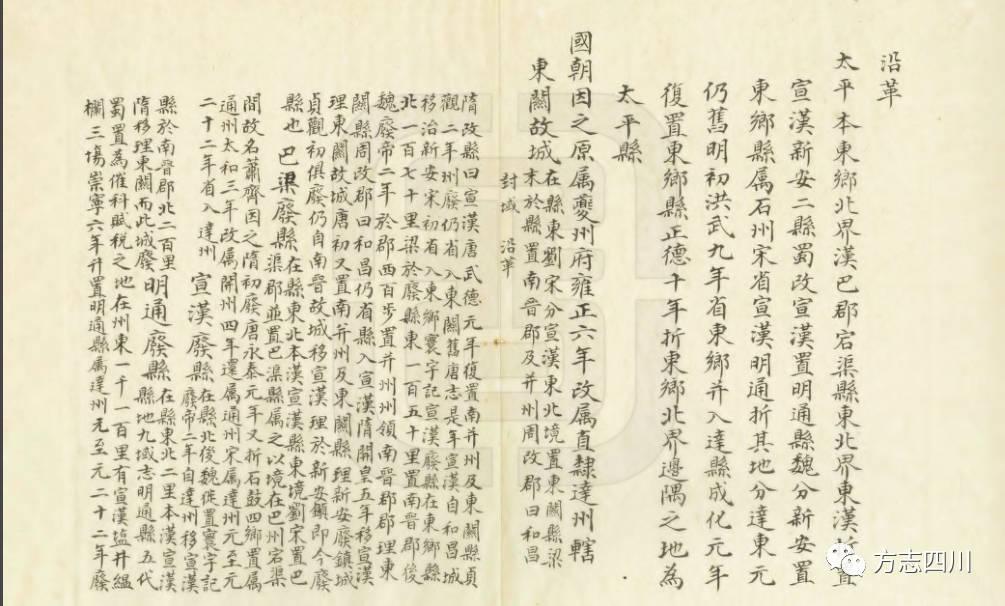 沿革
太平本東鄉北界漢巴郡宕渠縣東北界東漢置
宣漢新安二縣蜀改宣漢置明通縣魏分新安置
東鄉縣属石州宋省宣漢明通折其地分達東元
仍舊明初洪武九年省東鄉并入達縣成化元年
復置東鄉縣正德十年折東鄉北界邊隅之地為
太平縣
國朝因之原属夔州府雍正六年改属直隸達州轄
東關故城在縣東劉宋分宣漢東北境置東關縣梁
末於縣置南晉郡及并州周改郡曰和昌
封域 沿革
隋改縣曰宣漢唐武德元年復置南并州及東關縣貞
觀二年州廢仍省入東關舊唐志是年宣漢自和昌城
移治新安宋初省入東鄉寰宇記宣漢廢縣在東鄉縣
北一百七十里梁於廢縣東一百五十里置南晉郡後
魏廢帝二年於郡西百步置并州州領南晉郡郡理東
關縣周改郡曰和昌仍省縣入宣漢隋開皇五年移宣漢
理東關故城唐初又置南并州及東關縣理新安廢鎮城
貞觀初俱廢仍自南晉故城移宣漢理於新安鎮即今廢
縣也 巴渠廢縣在縣東北本漢宣漢縣東境劉宋置巴
渠郡並置巴渠縣属之以境在巴州宕渠
間故名蕭齊因之隋初廢唐永泰元年又折石鼓四鄉置属
通州太和三年改属開州四年還属通州宋属達州元至元
二十二年省入達州 宣漢廢縣在縣北後魏徙置寰宇記
廢帝二年自達州移宣漢
縣於南晉郡北二百里
隋移理東關而此城廢 明通廢縣在縣東北二里本漢宣漢
縣地九域志明通縣五代
蜀置為催科賦税之地在州東一千一百里有宣漢塩井緼
欄三塲崇寧六年并置明通縣属達州元至元二十二年廢
方志四川